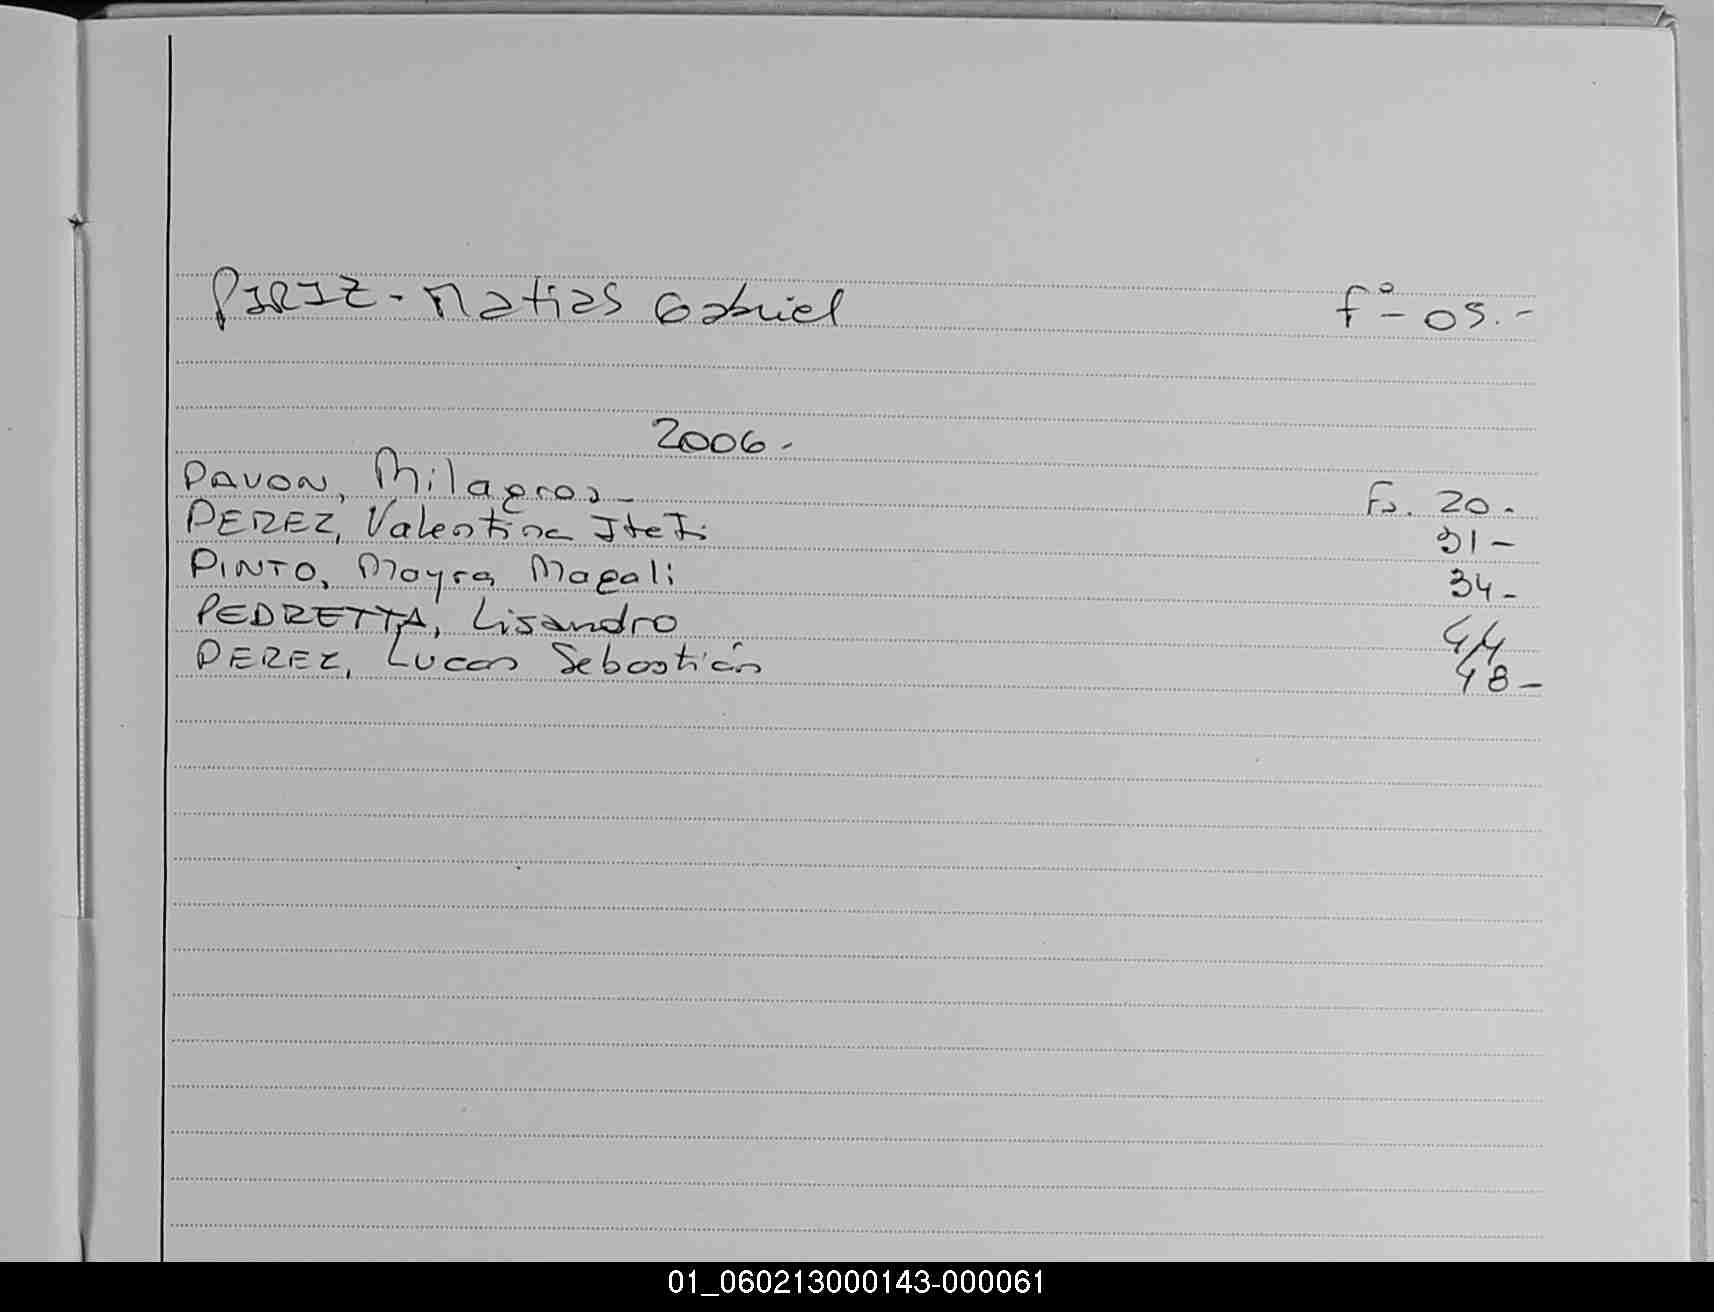 PIRIZ - Matias Gabriel fº - 05.-
2006.-
PAVON, Milagros- Fs. 20.
PEREZ, Valentina 31-
PINTO, Mayra Magali 34-
PEDRETTA, Lisandro 44
PEREZ, Lucas Sebastián 48-
01_060213000143-000061